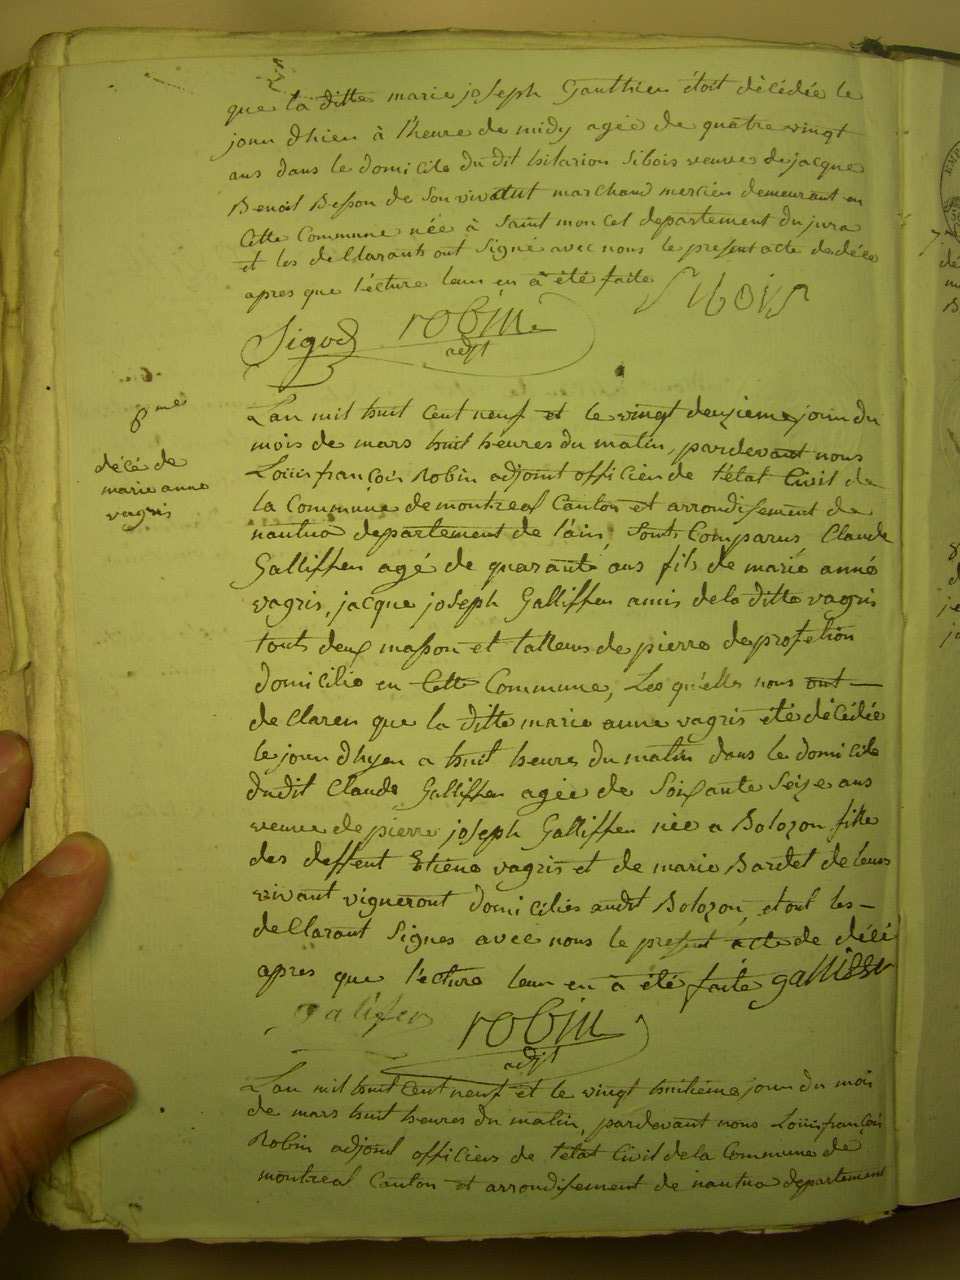 que la ditte marie joseph Gauthier étoit décédée le
jour dhier à l'heure de midy agée de quatre vingt
ans dans le domicile du dit hilarion Sibois veuve de jacque
Benoit Besson de son vivant marchand mercier demeurant en
cette Commune née à Saint moncel departement du jura
et les declarants ont Signe avec nous le present acte de décée
apres que l'écture leur en à été faite
Sibois
Sigod robin
adjt
8me
décé de
marie anne
vagris
L'an mil huit Cent neuf et le vingt deuzieme jour du
mois de mars huit héures du matin, pardevant nous
Loüis françois Robin adjoint officier de l'état Civil de
la Commune de montreal Canton et arrondisement de
nantua departement de l'ain, Sonts Comparus Claude
Galliffer agé de quarante ans fils de marie anne
vagris, jacque joseph Galliffer amis de la ditte vagris
touts deux masson et tallieurs de pierre de profetion
domicilie en Cette Commune, Les qu'elles nous ont
declaren que la ditte marie anne vagris été décédée
le jour dhyer a huit heures du matin dans le domicile
dudit Claude Galliffer agée de Soixante Seize ans
veuve de pierre joseph Galliffer née a Bolozon fille
des deffent Etiene vagris et de marie Bardet de leurs
vivant vigneront domiciliés audit Bolozon, et ont les
declarant Signes avec nous le present acte de décé
apres que l'écture leur en à été faite galliser
galifer robin
adjt
L'an mil huit Cent neuf et le vingt huitieme jour du mois
de mars huit heures du matin, pardevant nous Loüis françois
Robin adjoint officiers de l'état Civil de la Commune de
montreal Canton et arrondisement de nantua departement